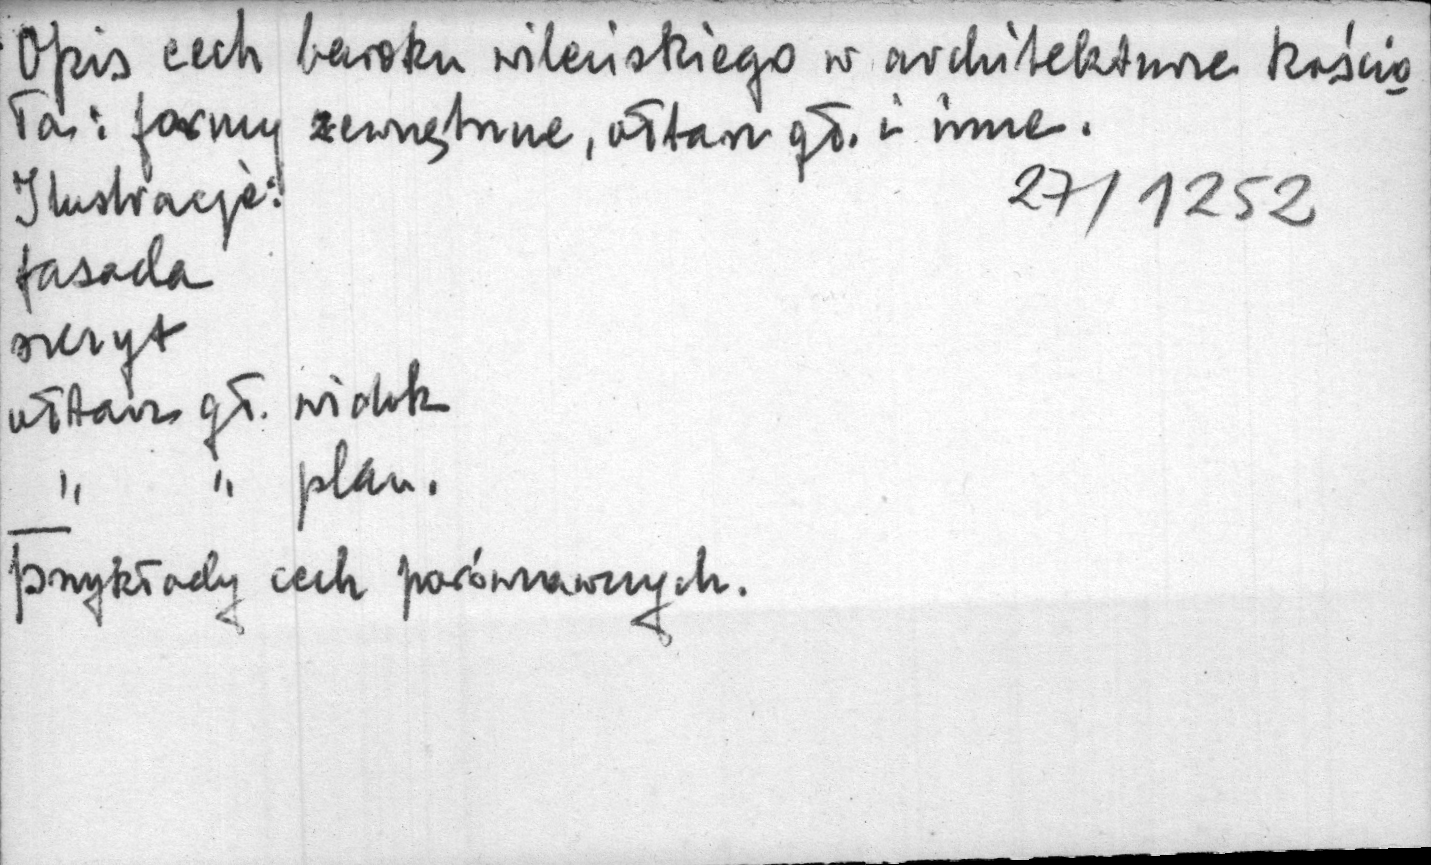 Opis cech baroku wileńskiego w architekturze kościo
ła: formy zewnętrzne, ołtarz gł. i inne.
Ilustracje: 27/1252
fasada
szczyt
ołtarz gł. widok
" " plan.
Przykłady cech porównawczych.